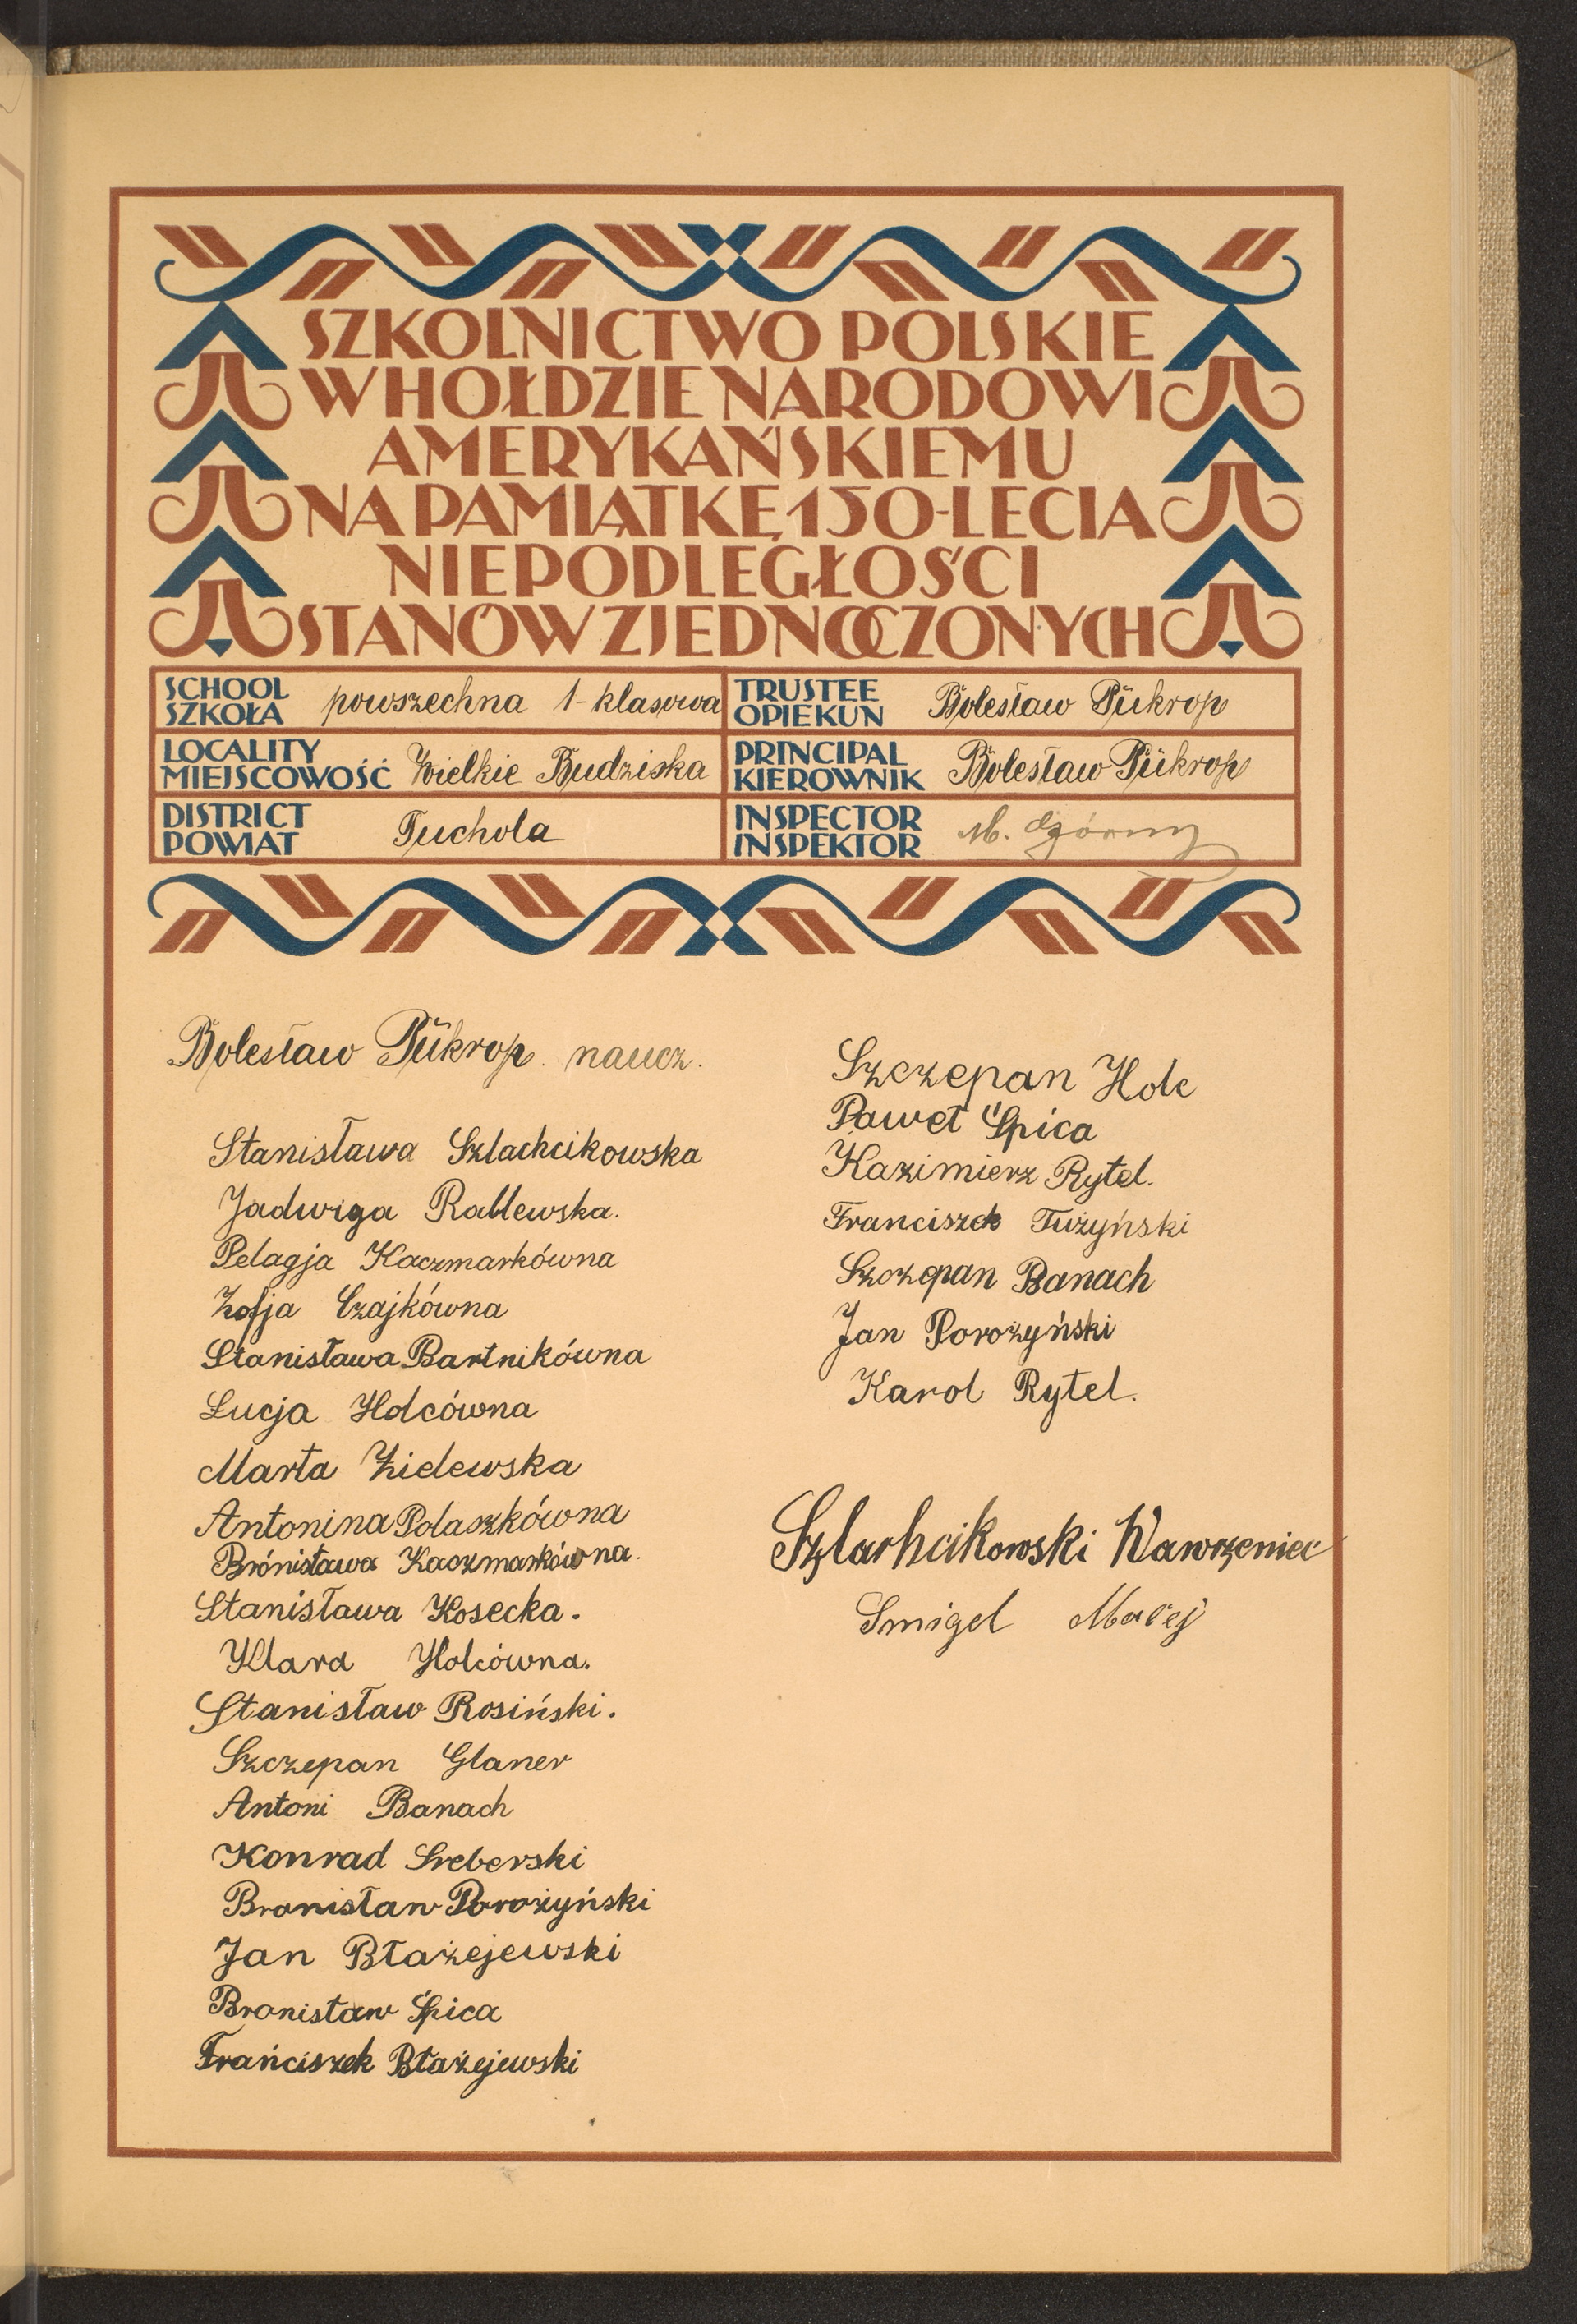 SZKOLNICTWO POLSKIE
W HOŁDZIE NARODOWI
AMERYKAŃSKIEMU
NA PAMIĄTKĘ 150-LECIA
NIEPODLEGŁOŚCI
STANÓW ZJEDNOCZONYCH
SCHOOL
SZKOŁA powszechna 1-klasowa
TRUSTEE
OPIEKUN Bolesław Pükrop
LOCALITY
MIEJSCOWOŚĆ Wielkie Budziska
PRINCIPAL
KIEROWNIK Bolesław Pükrop
DISTRICT
POWIAT Tuchola
INSPECTOR
INSPEKTOR M.
Bolesław Pükrop naucz.
Stanisława Szlachcikowska
Jadwiga Rablewska.
Pelagja Kaczmarkówna
Zofja Czajkówna
Stanisława Bartnikówna
Łucja Holcówna
Marta Zielewska
Antonina Polaszkówna
Brónisława Kaczmarkówna.
Stanisława Kosecka.
Klara Holcówna.
Stanisław Rosiński.
Szczepan Glaner
Antoni Banach
Konrad Sreberski
Bronisław Porożyński
Jan Błażejewski
Bronisław Śpica
Frańciszek Błażejewski
Szczepan Holc
Paweł Śpica
Kazimierz Rytel.
Franciszek Tużyński
Szczepan Banach
Jan Porożyński
Karol Rytel.
Szlachcikowski Wawrzeniec
Smigel Maciej